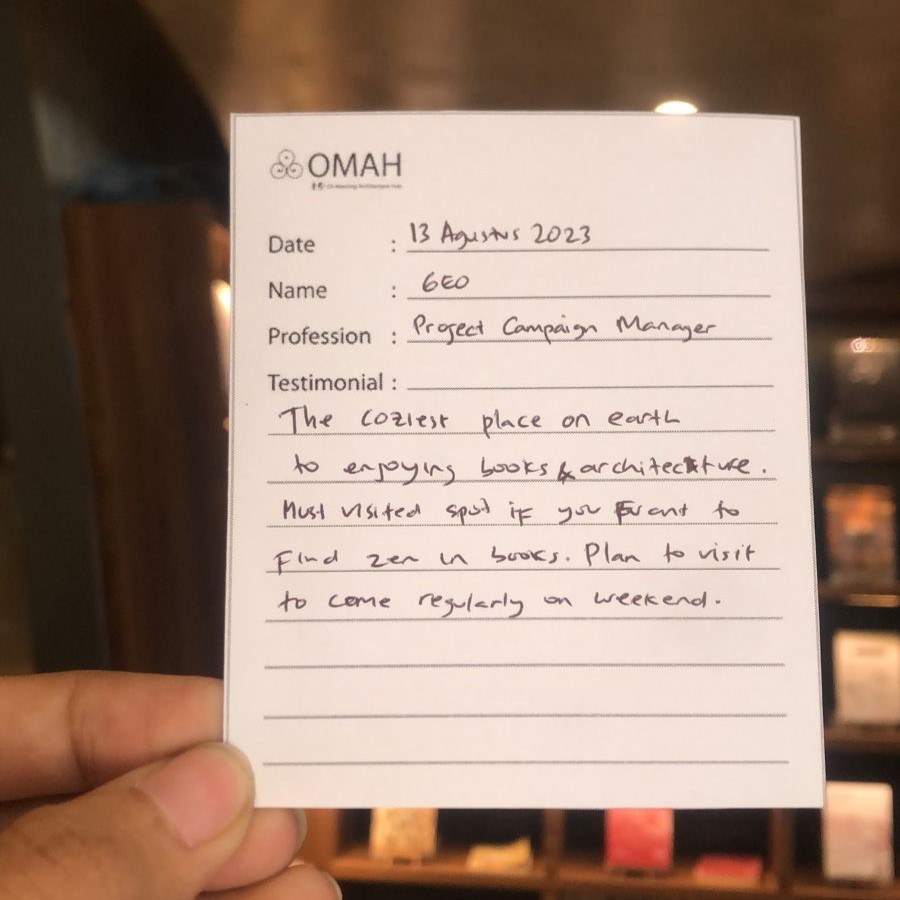 OMAH
Date : 13 Agustus 2023
Name : GEO
Profession : Project Campaign Manager
Testimonial :
The coziest place on earth
to enjoying books & architecture.
Must visited spot if you want to
find zen in books. Plan to visit
to come regularly on weekend.